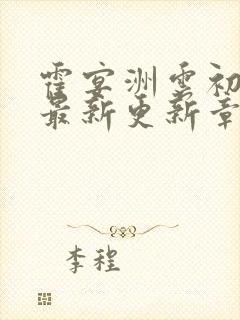 霍宴洲云初
最新更新章
李程